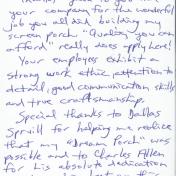 your company for the wonderful
job you all did building my
screen porch. "Quality you can
afford" really does apply here!
Your employees exhibit a
strong work ethic, attention to
detail, good communication skills
and true craftsmanship.
Special thanks to Dallas
Spruill for helping me realize
that my "dream porch" was
possible and to Charles Allen
for his absolute dedication